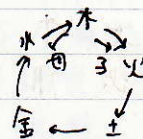 木
水 母 子 火
金 土